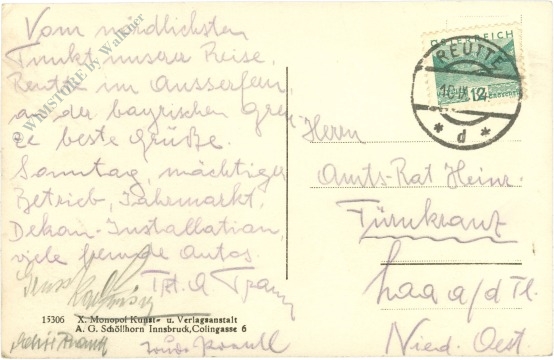 Vom nördlichsten
Punkt unserer Reise,
Reutte im Ausserfern,
an der bayrischen Gren
ze beste Grüße.
Sonntag, mächtiger
Betrieb, Jahrmarkt,
Dekan-Installation,
viele fremde Autos.
Gruss
© WIMSTORE by Walkner
15306 X. Monopol Kunst- u. Verlagsanstalt
A. G. Schöllhorn Innsbruck, Colingasse 6
ÖSTERREICH
REUTTE
d
Herrn
Amts-Rat Heinr.
Fürnkranz
Laa a/d Th.
Nied. Oest.